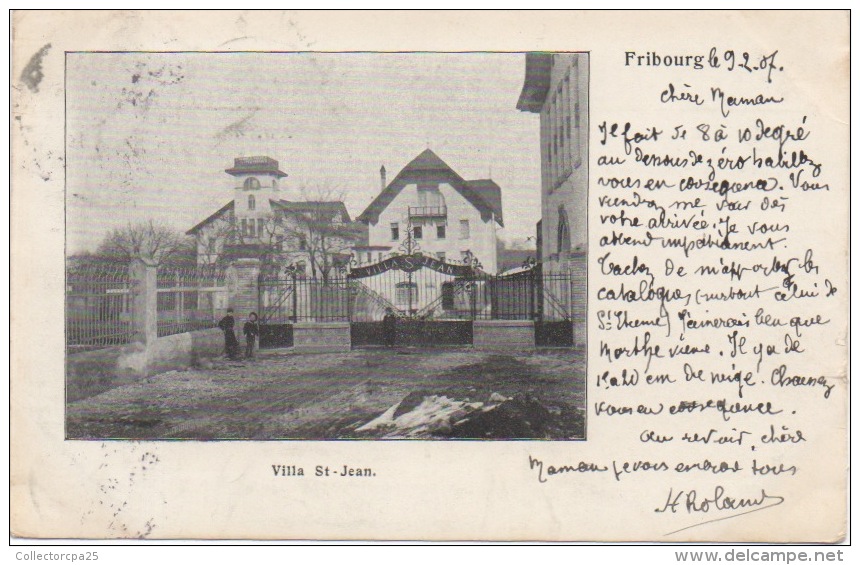 Fribourg le 9.2.07.
chère Maman
Il fait de 8 à 10 degré
au dessous de zéro habillez
vous en consequence. Vous
viendrez me voir dès
votre arrivée. Je vous
attend impatiament.
Tachez de m'apporter les
catalogues (surtout celui de
St Etienne) J'aimerais bien que
Marthe vienne. Il y a de
15 a 20 cm de neige. Chaussez
vous en consequence.
Au revoir, chère
Maman je vous embrasse tous
H Roland
VILLA ST JEAN
Villa St-Jean.
Collectorcpa25
www.delcampe.net